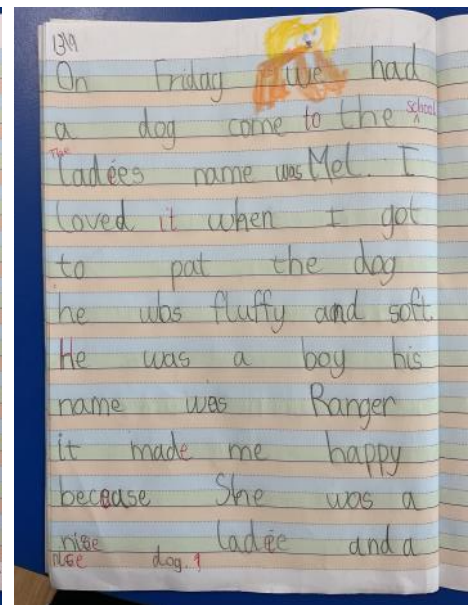 13/9
On Friday we had
a dog come to the school
The ladées name was Mel. I
loved it when I got
to pat the dog
he was fluffy and soft.
He was a boy his
name was Ranger
it made me happy
because She was a
nise ladée and a
nise dog.